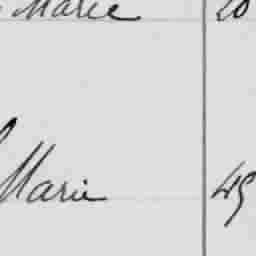 Marie 20
Marie 45